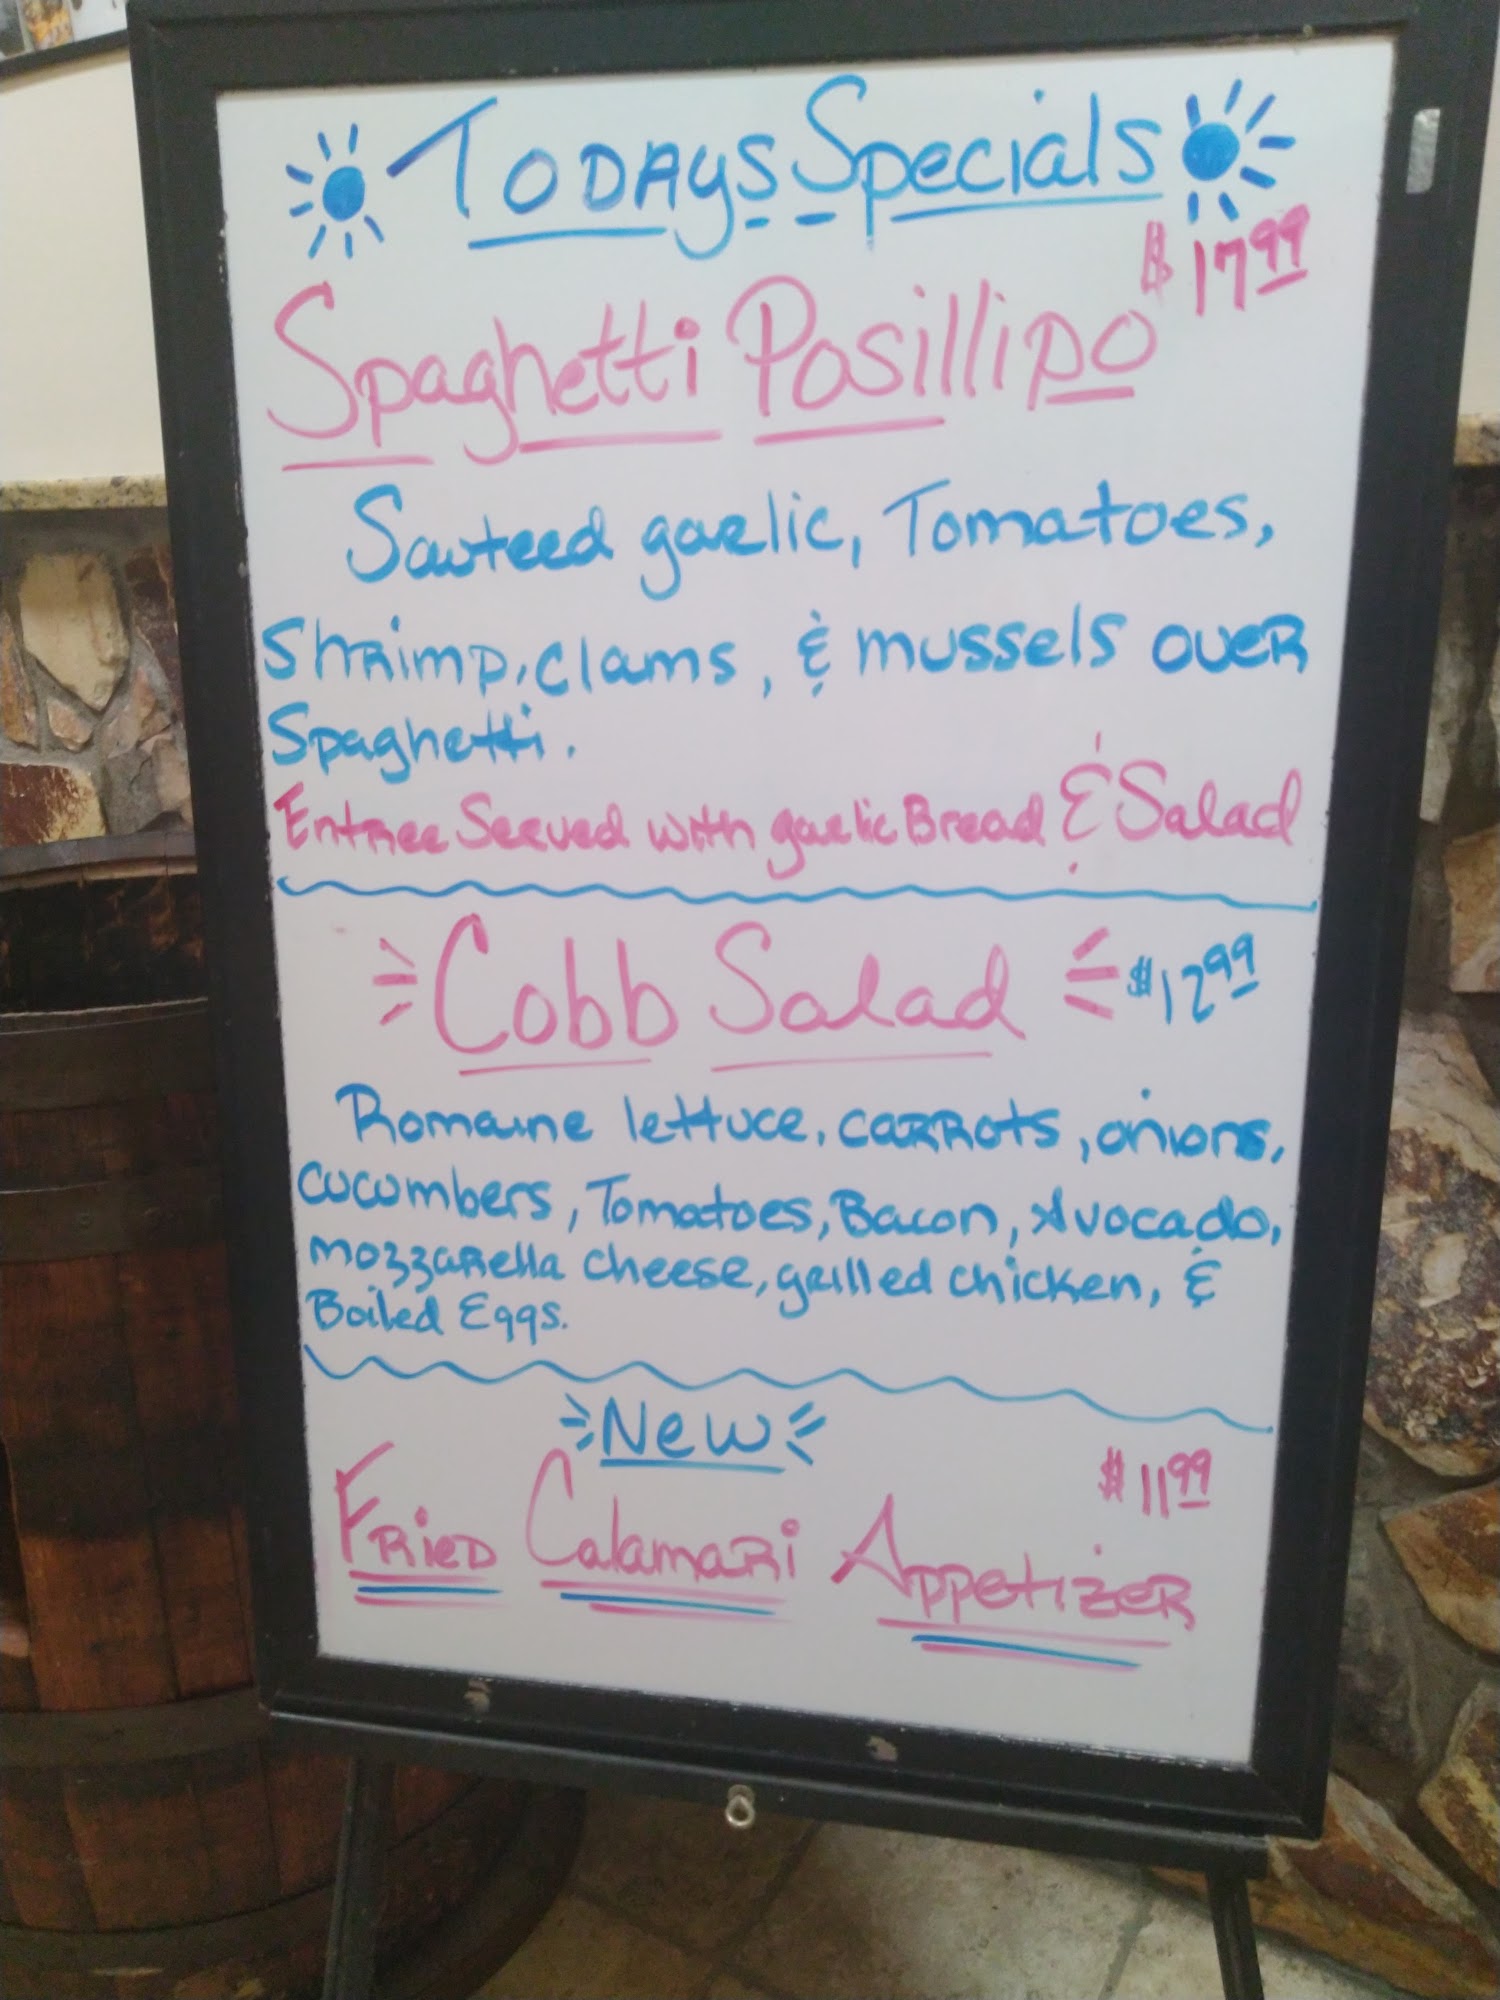 Todays Specials
$17.99
Spaghetti Posillipo
Sauteed garlic, Tomatoes,
Shrimp, clams, & mussels over
Spaghetti.
Entree Served with garlic Bread & Salad
Cobb Salad $12.99
Romaine lettuce, carrots, onions,
cucumbers, Tomatoes, Bacon, Avocado,
mozzarella cheese, grilled chicken, &
Boiled Eggs.
New
$11.99
Fried Calamari Appetizer